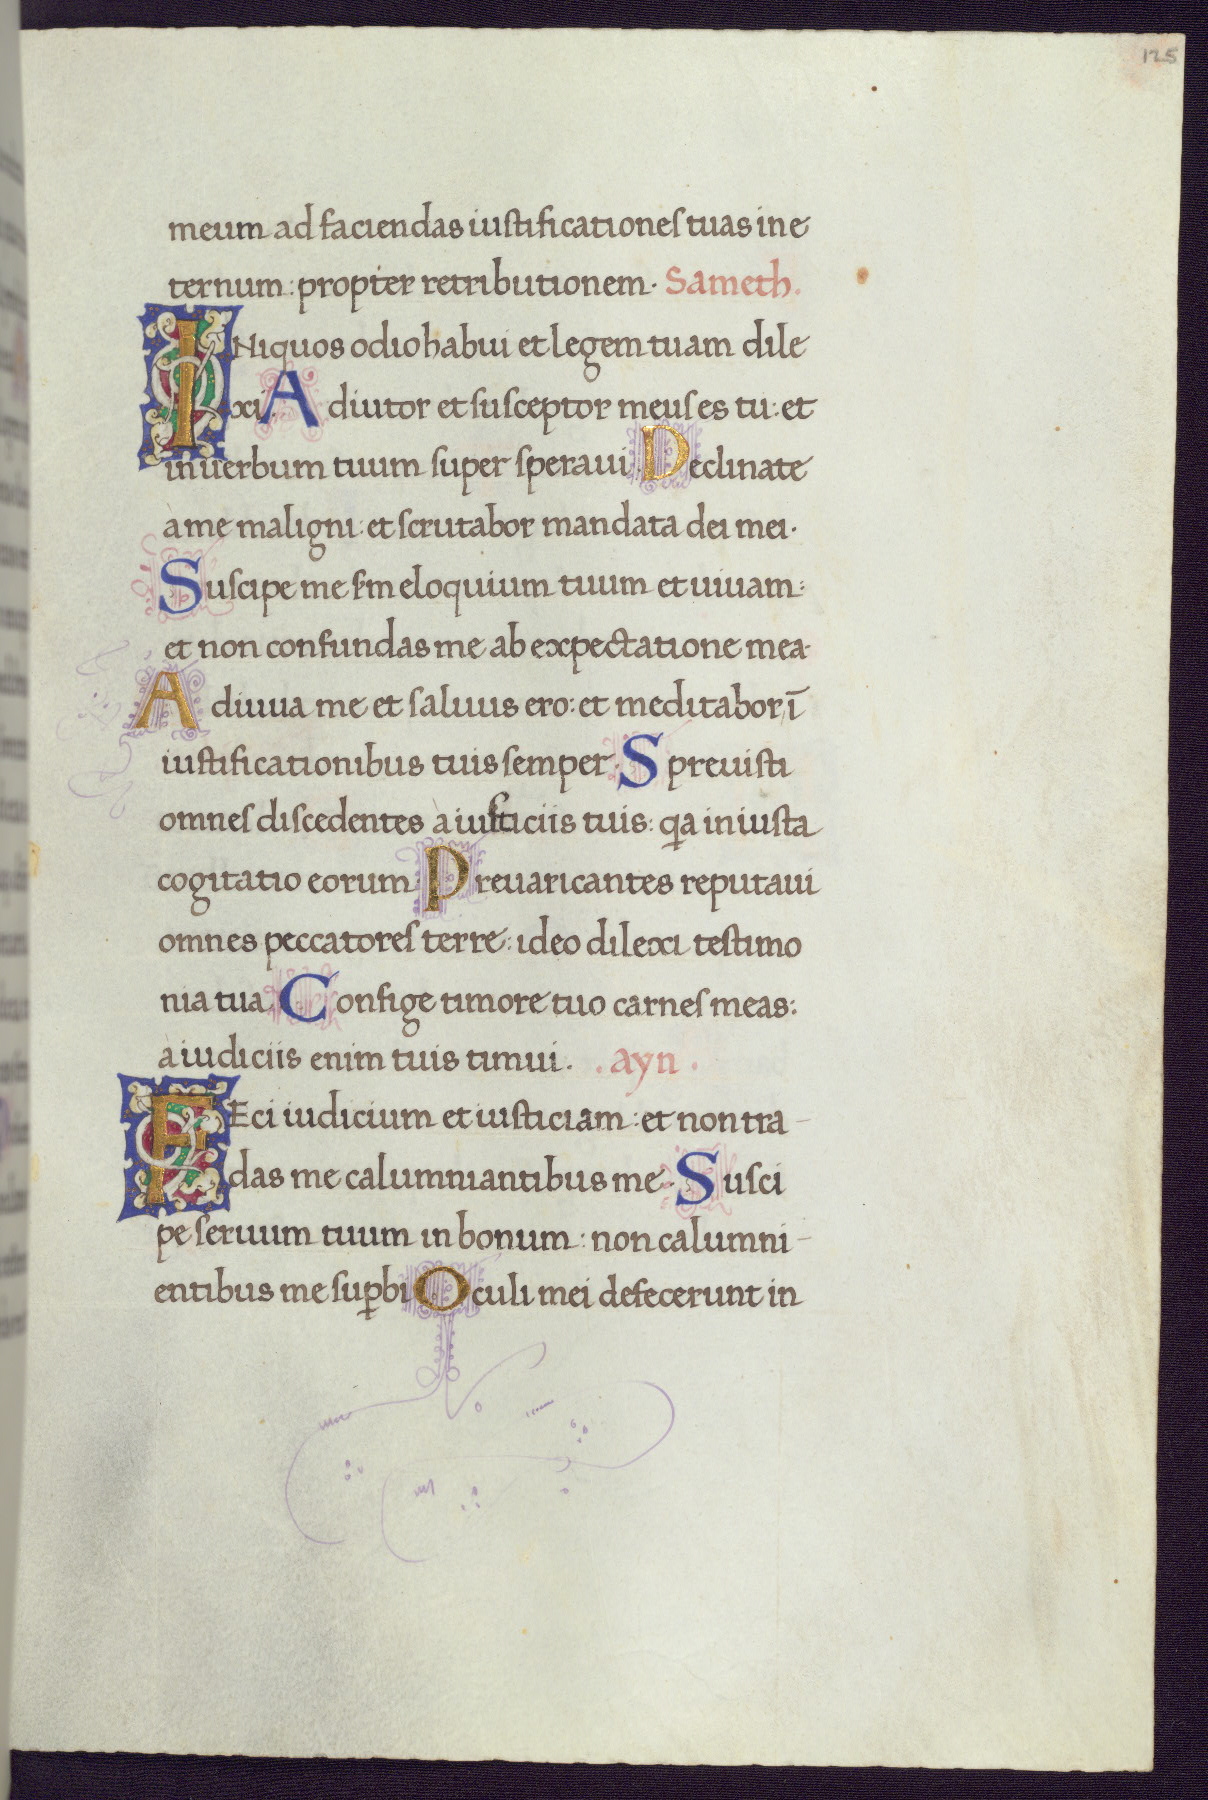 125
meum ad faciendas iustificationes tuas in e
ternum: propter retributionem. Sameth.
INiquos odio habui et legem tuam dile
xi. Adiutor et susceptor meus es tu: et
in uerbum tuum super speraui. Declinate
a me maligni: et scrutabor mandata dei mei.
Suscipe me scdm eloquium tuum et uiuam:
et non confundas me ab expectatione mea.
Adiuua me et saluus ero: et meditabor ī
iustificationibus tuis semper. Spreuisti
omnes discedentes a iusticiis tuis: qa iniusta
cogitatio eorum. Preuaricantes reputaui
omnes peccatores terre: ideo dilexi testimo
nia tua. Confige timore tuo carnes meas:
a iudiciis enim tuis timui. .ayn.
FEci iudicium et iusticiam: et non tra-
das me calumniantibus me. Susci
pe seruum tuum in bonum: non calumni-
entibus me suꝑbi. Oculi mei defecerunt in